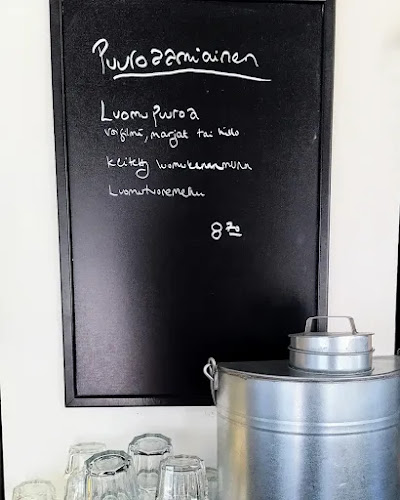 Puuroaamiainen
Luomupuroa
voisilmä, marjat tai hillo
Keitetty luomukananmuna
Luomutuoremehu
8 70